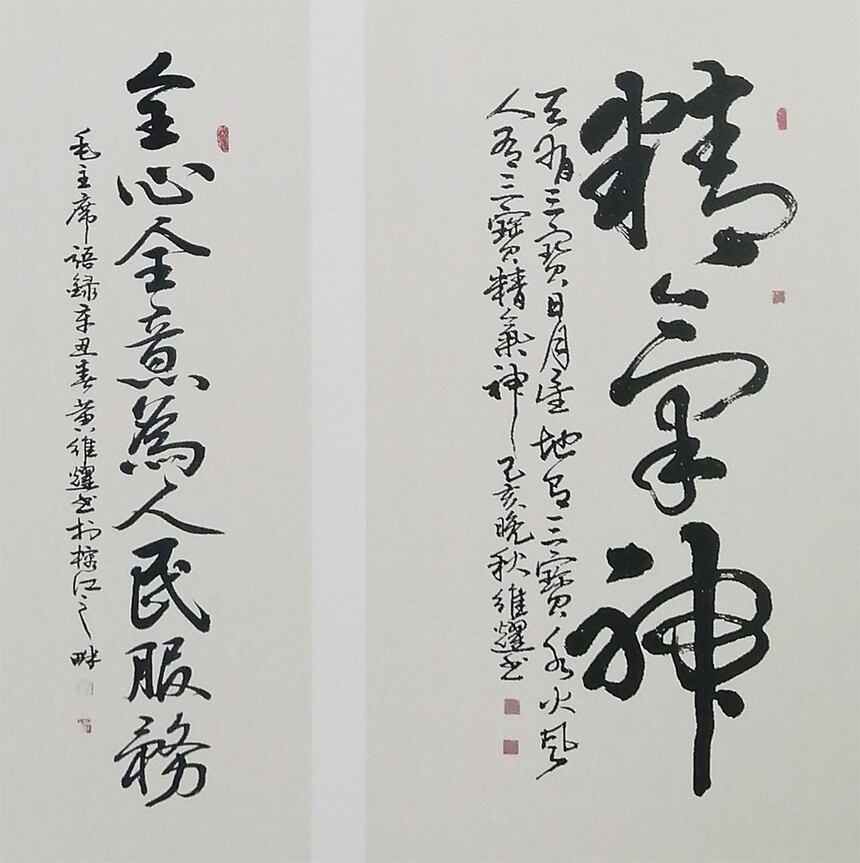 精氣神
天有三寶日月星地有三寶水火風
人有三寶精氣神己亥晚秋維耀书
全心全意為人民服務
毛主席語録辛丑春黄維耀书於榕江之畔